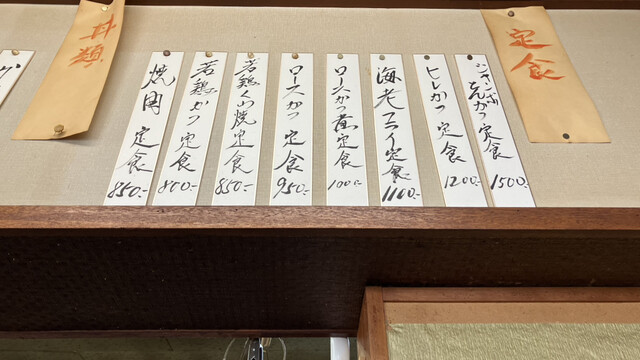 定食
ジャンボとんかつ定食
1500.-
ヒレかつ定食
1200.-
海老フライ定食
1100.-
ロースかつ煮定食
1000.-
ロースかつ定食
950.-
若鶏くわ焼定食
850.-
若鶏かつ定食
800.-
焼肉定食
850.-
丼類